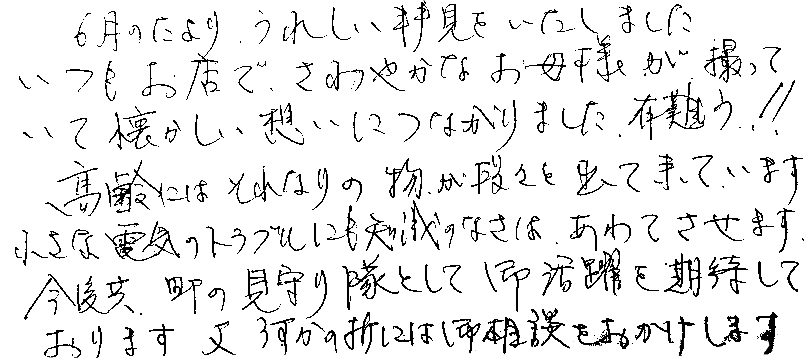 6月のたより うれしい拝見をいたしました
いつもお店で、さわやかなお母様が 撮って
いて 懐かしい想いにつながりました、有難う、!!
高齢にはそれなりの物が段々と出て来ています
小さな電気のトラブルにも知識のなさは、あわてさせます、
今後共、町の見守り隊として御活躍を期待して
おります 又何かの折には御相談をおかけします